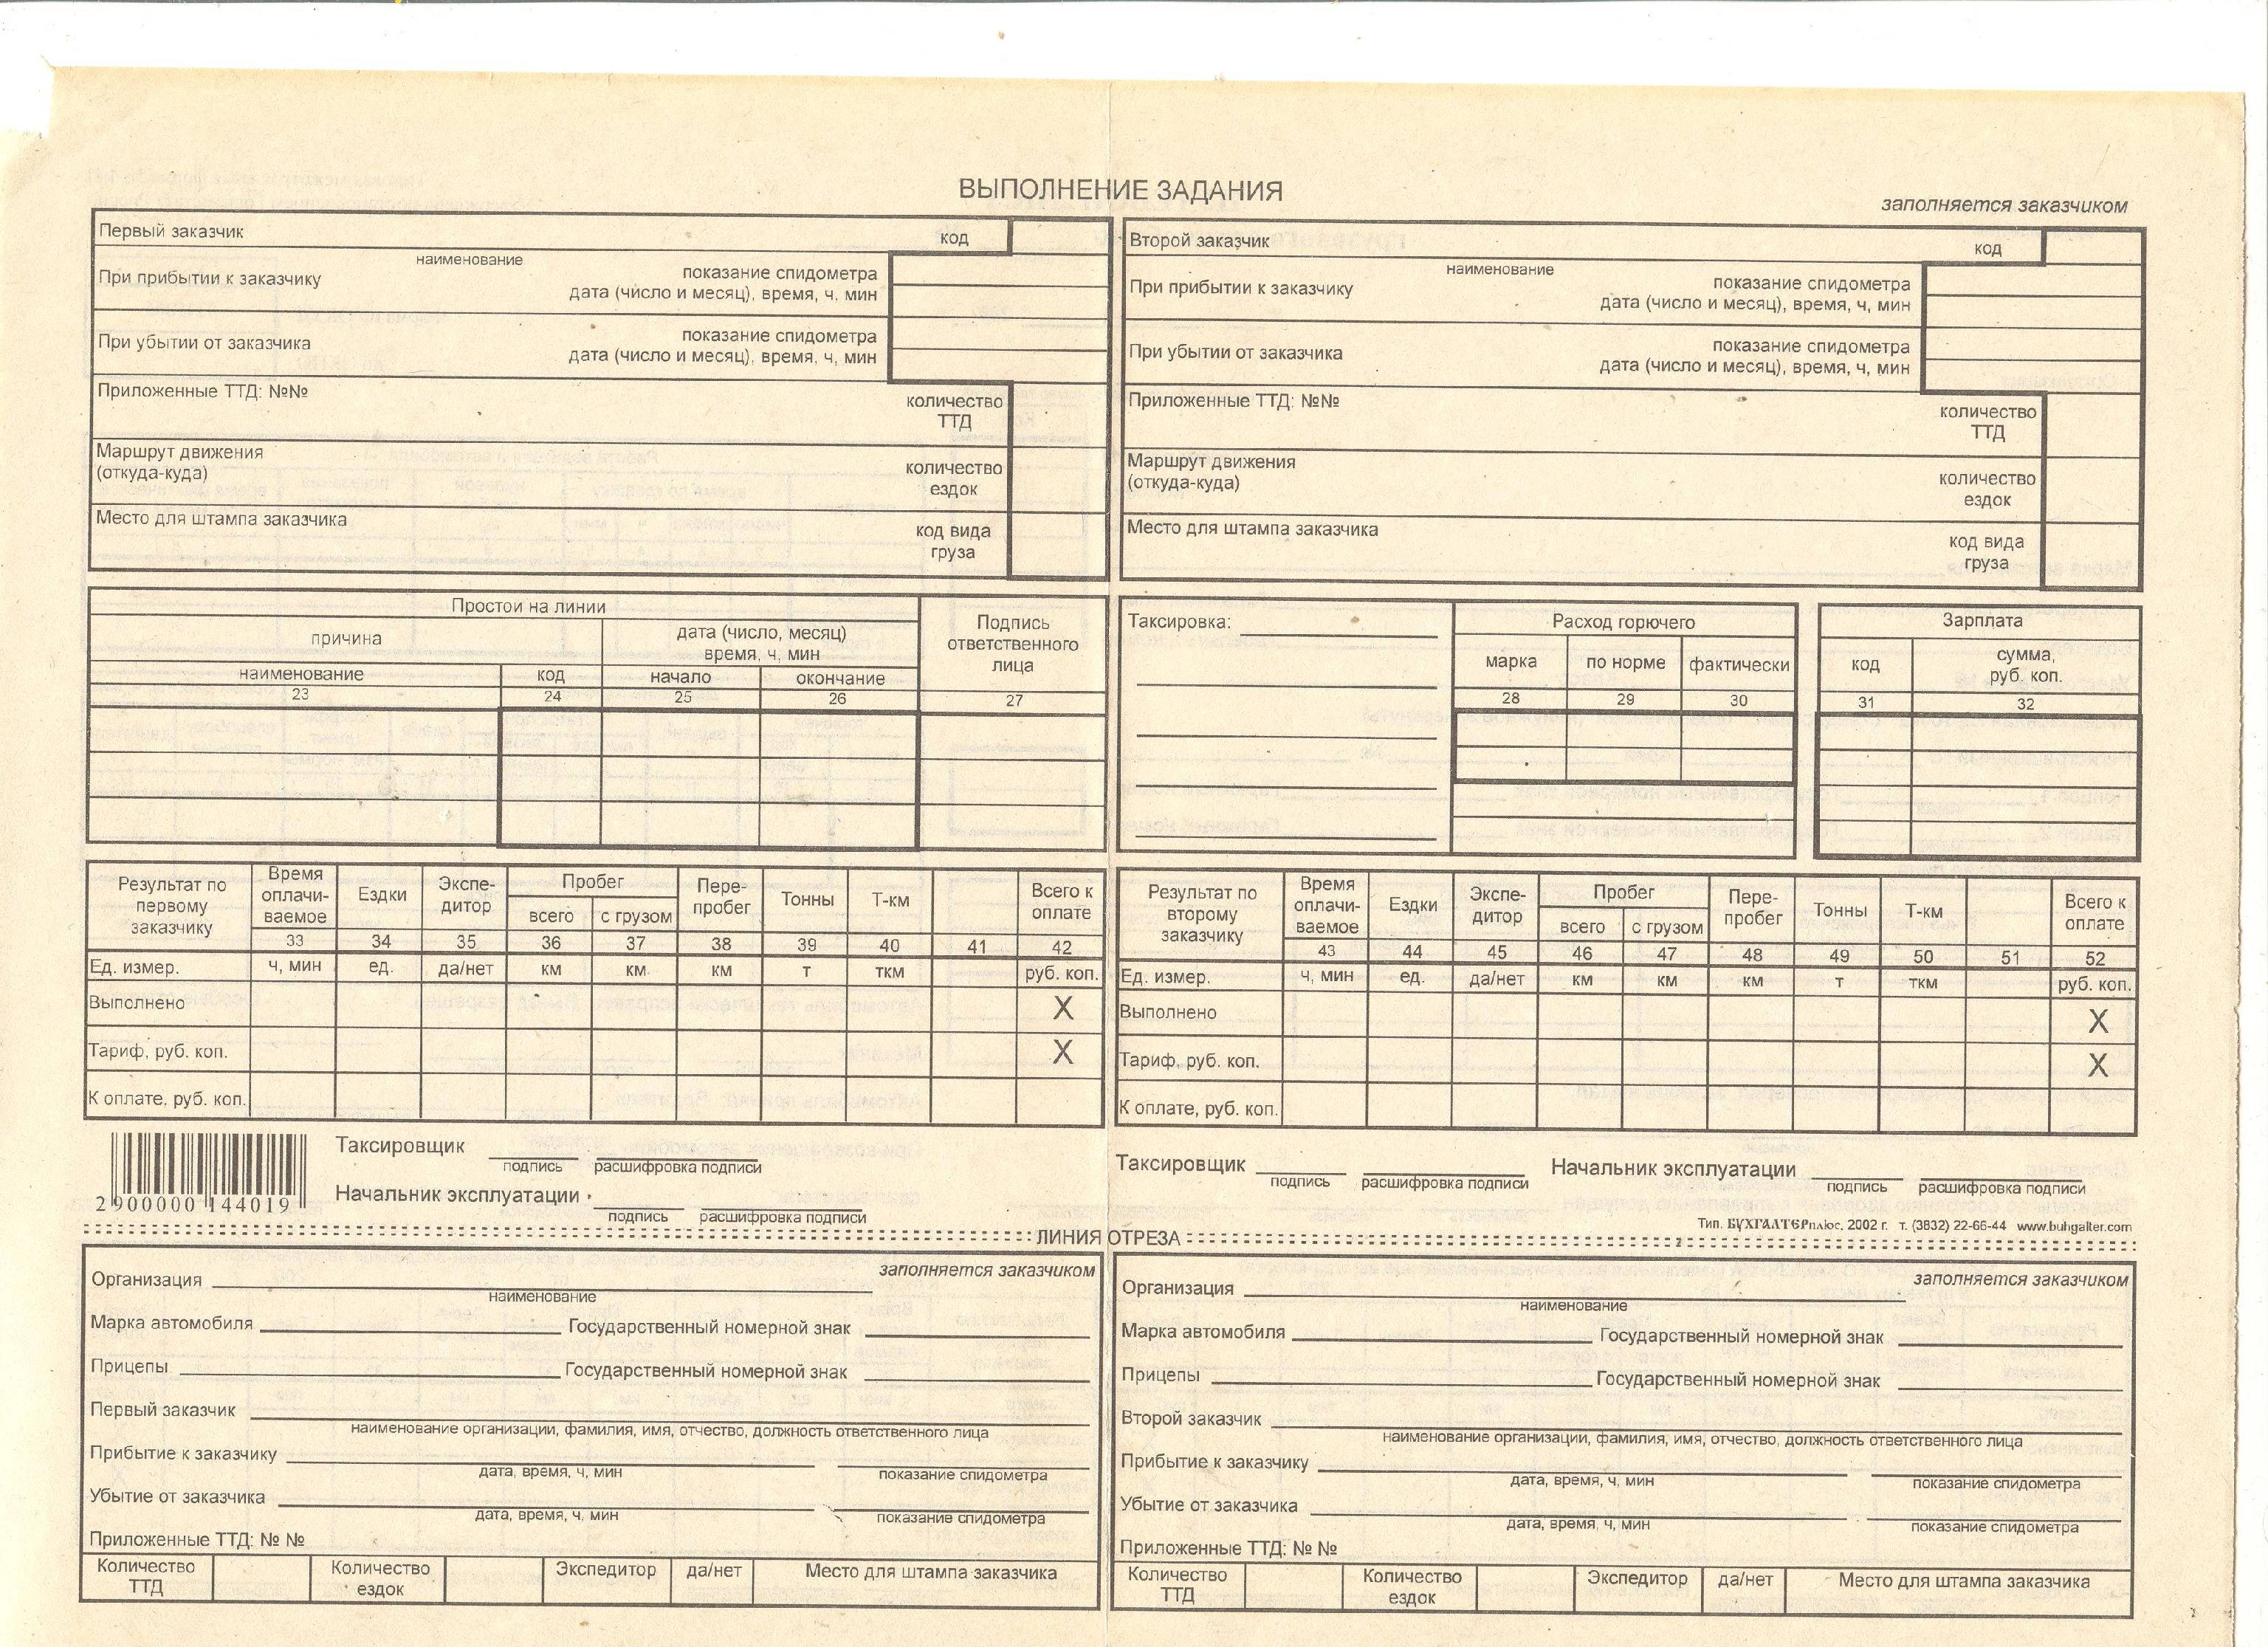 ВЫПОЛНЕНИЕ ЗАДАНИЯ
заполняется заказчиком
Первый заказчик код
наименование
При прибытии к заказчику показание спидометра
дата (число и месяц), время, ч. мин
При убытии от заказчика показание спидометра
дата (число и месяц), время, ч, мин
Приложенные ТТД: №№ количество
ТТД
Маршрут движения
(откуда-куда) количество
ездок
Место для штампа заказчика код вида
груза
Второй заказчик код
наименование
При прибытии к заказчику показание спидометра
дата (число и месяц), время, ч, мин
При убытии от заказчика показание спидометра
дата (число и месяц), время, ч, мин
Приложенные ТТД: №№ количество
ТТД
Маршрут движения
(откуда-куда) количество
ездок
Место для штампа заказчика код вида
груза
Простои на линии Подпись
ответственного
лица
причина дата (число, месяц)
время, ч, мин
наименование код начало окончание
23 24 25 26 27
Таксировка:
Расход горючего
марка по норме фактически
28 29 30
Зарплата
код сумма,
руб. коп.
31 32
Результат по
первому
заказчику
Время
оплачи-
ваемое
Ездки
Экспе-
дитор
Пробег
всего с грузом
Пере-
пробег
Тонны
Т-км
Всего к
оплате
33 34 35 36 37 38 39 40 41 42
Ед. измер. ч, мин ед. да/нет км км км т ткм руб. коп.
Выполнено X
Тариф, руб. коп. X
К оплате, руб. коп.
Результат по
второму
заказчику
Время
оплачи-
ваемое
Ездки
Экспе-
дитор
Пробег
всего с грузом
Пере-
пробег
Тонны
Т-км
Всего к
оплате
43 44 45 46 47 48 49 50 51 52
Ед. измер. ч, мин ед. да/нет км км км т ткм руб. коп.
Выполнено X
Тариф, руб. коп. X
К оплате, руб. коп.
2 900000 144019
Таксировщик
подпись расшифровка подписи
Начальник эксплуатации
подпись расшифровка подписи
Таксировщик Начальник эксплуатации
подпись расшифровка подписи подпись расшифровка подписи
Тип. БУХГАЛТЕРплюс, 2002 г. т. (3832) 22-66-44 www.buhgalter.com
ЛИНИЯ ОТРЕЗА
заполняется заказчиком
Организация
наименование
Марка автомобиля Государственный номерной знак
Прицепы Государственный номерной знак
Первый заказчик
наименование организации, фамилия, имя, отчество, должность ответственного лица
Прибытие к заказчику
дата, время, ч, мин показание спидометра
Убытие от заказчика
дата, время, ч, мин показание спидометра
Приложенные ТТД: № №
Количество
ТТД
Количество
ездок
Экспедитор да/нет Место для штампа заказчика
заполняется заказчиком
Организация
наименование
Марка автомобиля Государственный номерной знак
Прицепы Государственный номерной знак
Второй заказчик
наименование организации, фамилия, имя, отчество, должность ответственного лица
Прибытие к заказчику
дата, время, ч, мин показание спидометра
Убытие от заказчика
дата, время, ч, мин показание спидометра
Приложенные ТТД: № №
Количество
ТТД
Количество
ездок
Экспедитор да/нет Место для штампа заказчика